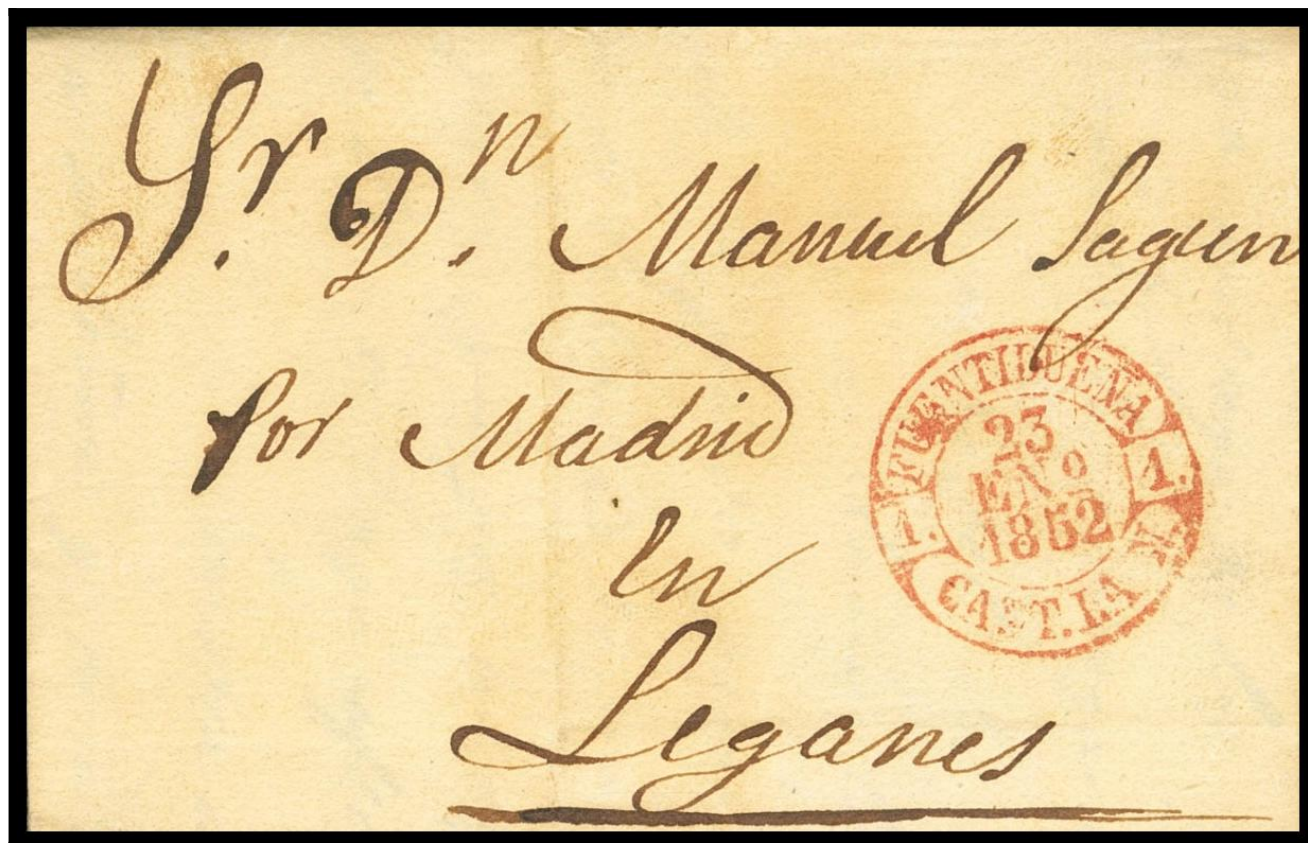 Sr. Dn. Manuel Sagun
por Madrid
En
Leganes
FUENTIDUEÑA
1. 1.
23
ENº
1852
CAST. LA N.